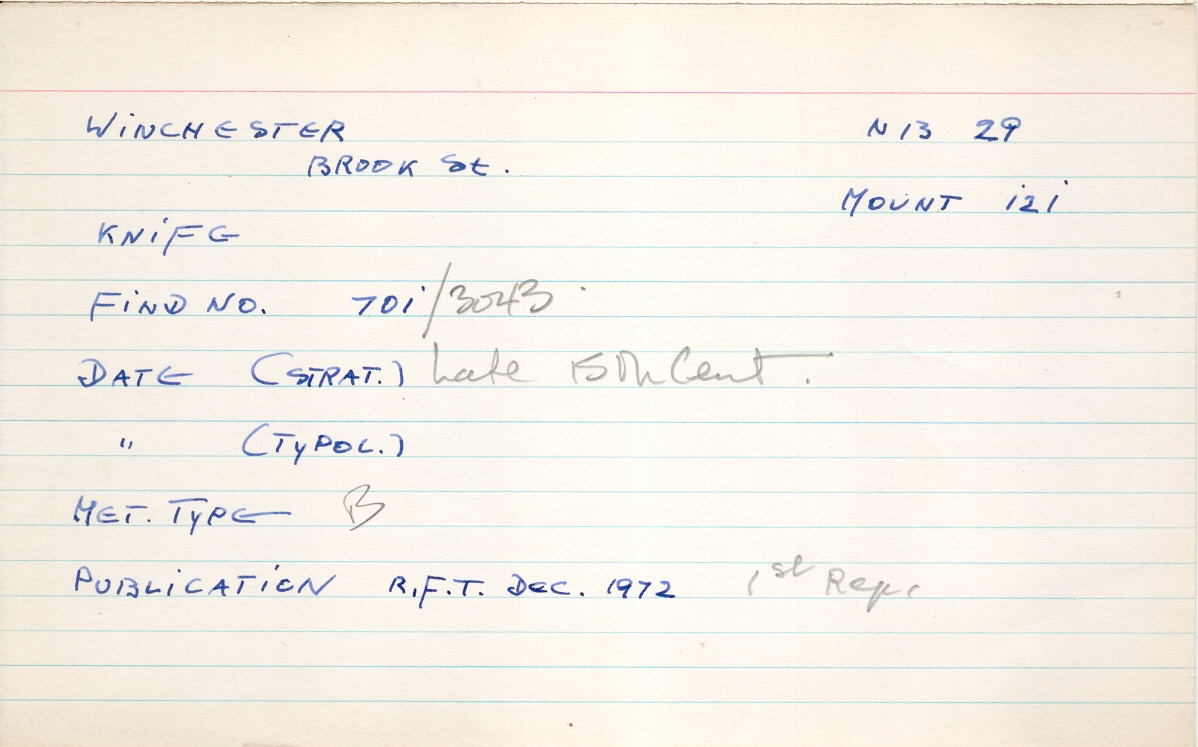 WINCHESTER N13 29
BROOK St.
MOUNT 121
KNIFE
FIND NO. 701/3043
DATE (STRAT.) Late 15th Cent.
" (TYPOL.)
MET. TYPE B
PUBLICATION R.F.T. DEC. 1972 1st Rep.